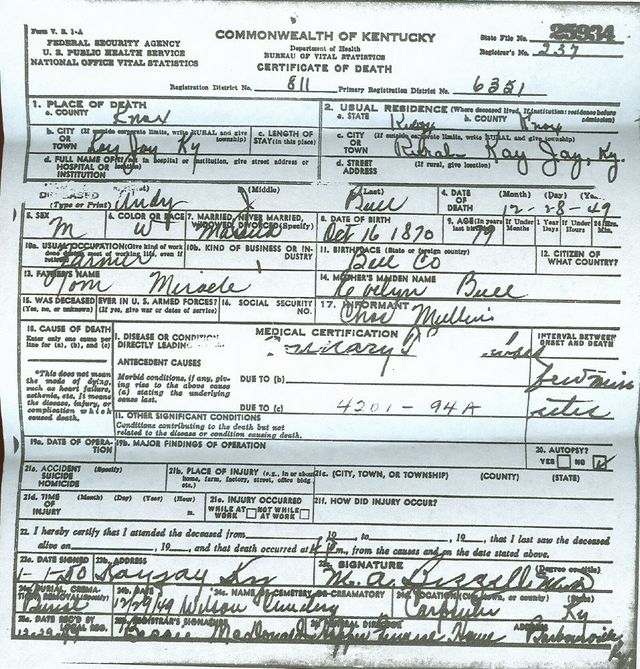 Form V. S. 1-A
FEDERAL SECURITY AGENCY
U. S. PUBLIC HEALTH SERVICE
NATIONAL OFFICE VITAL STATISTICS
COMMONWEALTH OF KENTUCKY
Department of Health
BUREAU OF VITAL STATISTICS
CERTIFICATE OF DEATH
State File No. 25934
Registrar's No. 237
Registration District No. 811 Primary Registration District No. 6351
1. PLACE OF DEATH
a. COUNTY Knox
2. USUAL RESIDENCE (Where deceased lived. If institution: residence before admission)
a. STATE b. COUNTY Knox
b. CITY (If outside corporate limits, write RURAL and give township) OR TOWN Kay Jay Ky
c. LENGTH OF STAY (in this place)
c. CITY (If outside corporate limits, write RURAL and give township) OR TOWN Rural Kay Jay, Ky.
d. FULL NAME OF (If not in hospital or institution, give street address or location) HOSPITAL OR INSTITUTION
d. STREET ADDRESS (If rural, give location)
DECEASED (Type or Print) Andy (Middle) J (Last) Bull
4. DATE OF DEATH (Month) (Day) 12-28-49
5. SEX M
6. COLOR OR RACE W
7. MARRIED, NEVER MARRIED, WIDOWED, DIVORCED (Specify) Married
8. DATE OF BIRTH Oct 16 1870
9. AGE (In years last birthday) 79
If Under 1 Year Months Days If Under 24 Hrs. Hours Min.
10a. USUAL OCCUPATION (Give kind of work done during most of working life, even if retired) Farmer
10b. KIND OF BUSINESS OR INDUSTRY
11. BIRTHPLACE (State or foreign country) Bell Co
12. CITIZEN OF WHAT COUNTRY?
13. FATHER'S NAME Tom Miracle
14. MOTHER'S MAIDEN NAME Evelyn Bull
15. WAS DECEASED EVER IN U. S. ARMED FORCES? (Yes, no, or unknown) (If yes, give war or dates of service)
16. SOCIAL SECURITY NO.
17. INFORMANT Chas Mullins
18. CAUSE OF DEATH
Enter only one cause per line for (a), (b), and (c)
MEDICAL CERTIFICATION
I. DISEASE OR CONDITION DIRECTLY LEADING
INTERVAL BETWEEN ONSET AND DEATH
few minutes
*This does not mean the mode of dying, such as heart failure, asthenia, etc. It means the disease, injury, or complication which caused death.
ANTECEDENT CAUSES
Morbid conditions, if any, giving rise to the above cause (a) stating the underlying cause last.
DUE TO (b)
DUE TO (c) 4201 - 94A
II. OTHER SIGNIFICANT CONDITIONS
Conditions contributing to the death but not related to the disease or condition causing death.
19a. DATE OF OPERATION
19b. MAJOR FINDINGS OF OPERATION
20. AUTOPSY? YES NO
21a. ACCIDENT SUICIDE HOMICIDE (Specify)
21b. PLACE OF INJURY (e.g., in or about home, farm, factory, street, office bldg., etc.)
21c. (CITY, TOWN, OR TOWNSHIP) (COUNTY) (STATE)
21d. TIME OF INJURY (Month) (Day) (Year) (Hour) m.
21e. INJURY OCCURRED WHILE AT WORK NOT WHILE AT WORK
21f. HOW DID INJURY OCCUR?
22. I hereby certify that I attended the deceased from , 19 , to , 19 , that I last saw the deceased
alive on , 19 , and that death occurred at m., from the causes and on the date stated above.
23a. DATE SIGNED 1-1-50
23b. ADDRESS Kayjay Ky
23c. SIGNATURE (Degree or title)
24a. BURIAL, CREMATION, REMOVAL (Specify) Burial
24b. DATE 12/29/49
24c. NAME OF CEMETERY OR CREMATORY Wilson Cemetery
24d. LOCATION (City, town, or county) (State) Carpenter Ky
25a. DATE REC'D BY LOCAL REG.
25b. REGISTRAR'S SIGNATURE MacDonald
26. FUNERAL DIRECTOR Funeral Home
ADDRESS